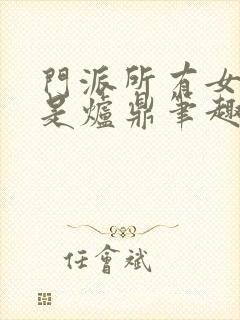 門派所有女
是爐鼎筆趣
任會斌